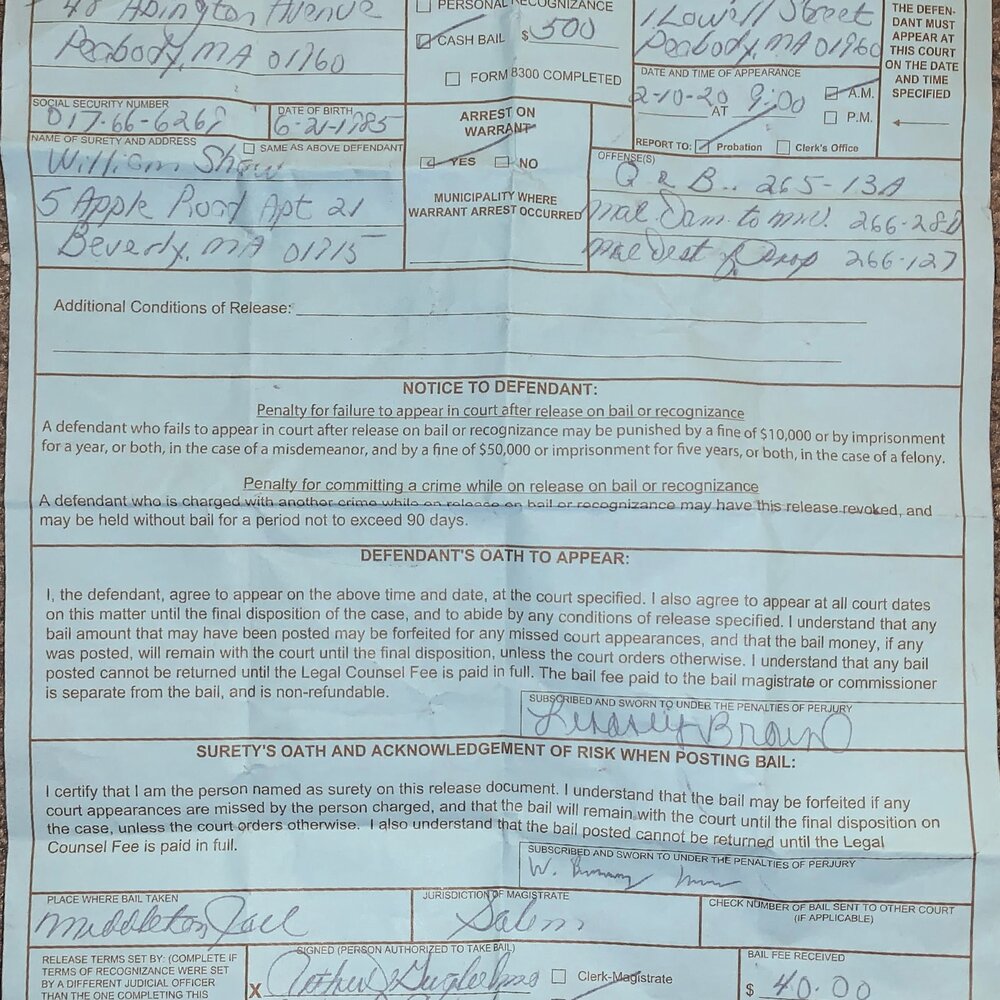 48 Abington Avenue
Peabody, MA 01960
PERSONAL RECOGNIZANCE
CASH BAIL $ 500
FORM 8300 COMPLETED
1 Lowell Street
Peabody, MA 01960
DATE AND TIME OF APPEARANCE
2-10-20 AT 9:00 A.M.
P.M.
REPORT TO: Probation Clerk's Office
THE DEFEN-
DANT MUST
APPEAR AT
THIS COURT
ON THE DATE
AND TIME
SPECIFIED
SOCIAL SECURITY NUMBER
DATE OF BIRTH
6-21-1985
NAME OF SURETY AND ADDRESS SAME AS ABOVE DEFENDANT
William Shaw
5 Apple Road Apt 21
Beverly, MA 01915
ARREST ON
WARRANT
YES NO
MUNICIPALITY WHERE
WARRANT ARREST OCCURRED
OFFENSE(S)
A & B.. 265-13A
Mal Dam to M.V. 266-28
Mal Dest of Prop 266-127
Additional Conditions of Release:
NOTICE TO DEFENDANT:
Penalty for failure to appear in court after release on bail or recognizance
A defendant who fails to appear in court after release on bail or recognizance may be punished by a fine of $10,000 or by imprisonment
for a year, or both, in the case of a misdemeanor, and by a fine of $50,000 or imprisonment for five years, or both, in the case of a felony.
Penalty for committing a crime while on release on bail or recognizance
A defendant who is charged with another crime while on release on bail or recognizance may have this release revoked, and
may be held without bail for a period not to exceed 90 days.
DEFENDANT'S OATH TO APPEAR:
I, the defendant, agree to appear on the above time and date, at the court specified. I also agree to appear at all court dates
on this matter until the final disposition of the case, and to abide by any conditions of release specified. I understand that any
bail amount that may have been posted may be forfeited for any missed court appearances, and that the bail money, if any
was posted, will remain with the court until the final disposition, unless the court orders otherwise. I understand that any bail
posted cannot be returned until the Legal Counsel Fee is paid in full. The bail fee paid to the bail magistrate or commissioner
is separate from the bail, and is non-refundable.
SUBSCRIBED AND SWORN TO UNDER THE PENALTIES OF PERJURY
SURETY'S OATH AND ACKNOWLEDGEMENT OF RISK WHEN POSTING BAIL:
I certify that I am the person named as surety on this release document. I understand that the bail may be forfeited if any
court appearances are missed by the person charged, and that the bail will remain with the court until the final disposition on
the case, unless the court orders otherwise. I also understand that the bail posted cannot be returned until the Legal
Counsel Fee is paid in full.
SUBSCRIBED AND SWORN TO UNDER THE PENALTIES OF PERJURY
PLACE WHERE BAIL TAKEN
Middleton Jail
JURISDICTION OF MAGISTRATE
Salem
CHECK NUMBER OF BAIL SENT TO OTHER COURT
(IF APPLICABLE)
RELEASE TERMS SET BY: (COMPLETE IF
TERMS OF RECOGNIZANCE WERE SET
BY A DIFFERENT JUDICIAL OFFICER
THAN THE ONE COMPLETING THIS
SIGNED (PERSON AUTHORIZED TO TAKE BAIL)
X
Clerk-Magistrate
BAIL FEE RECEIVED
$ 40.00